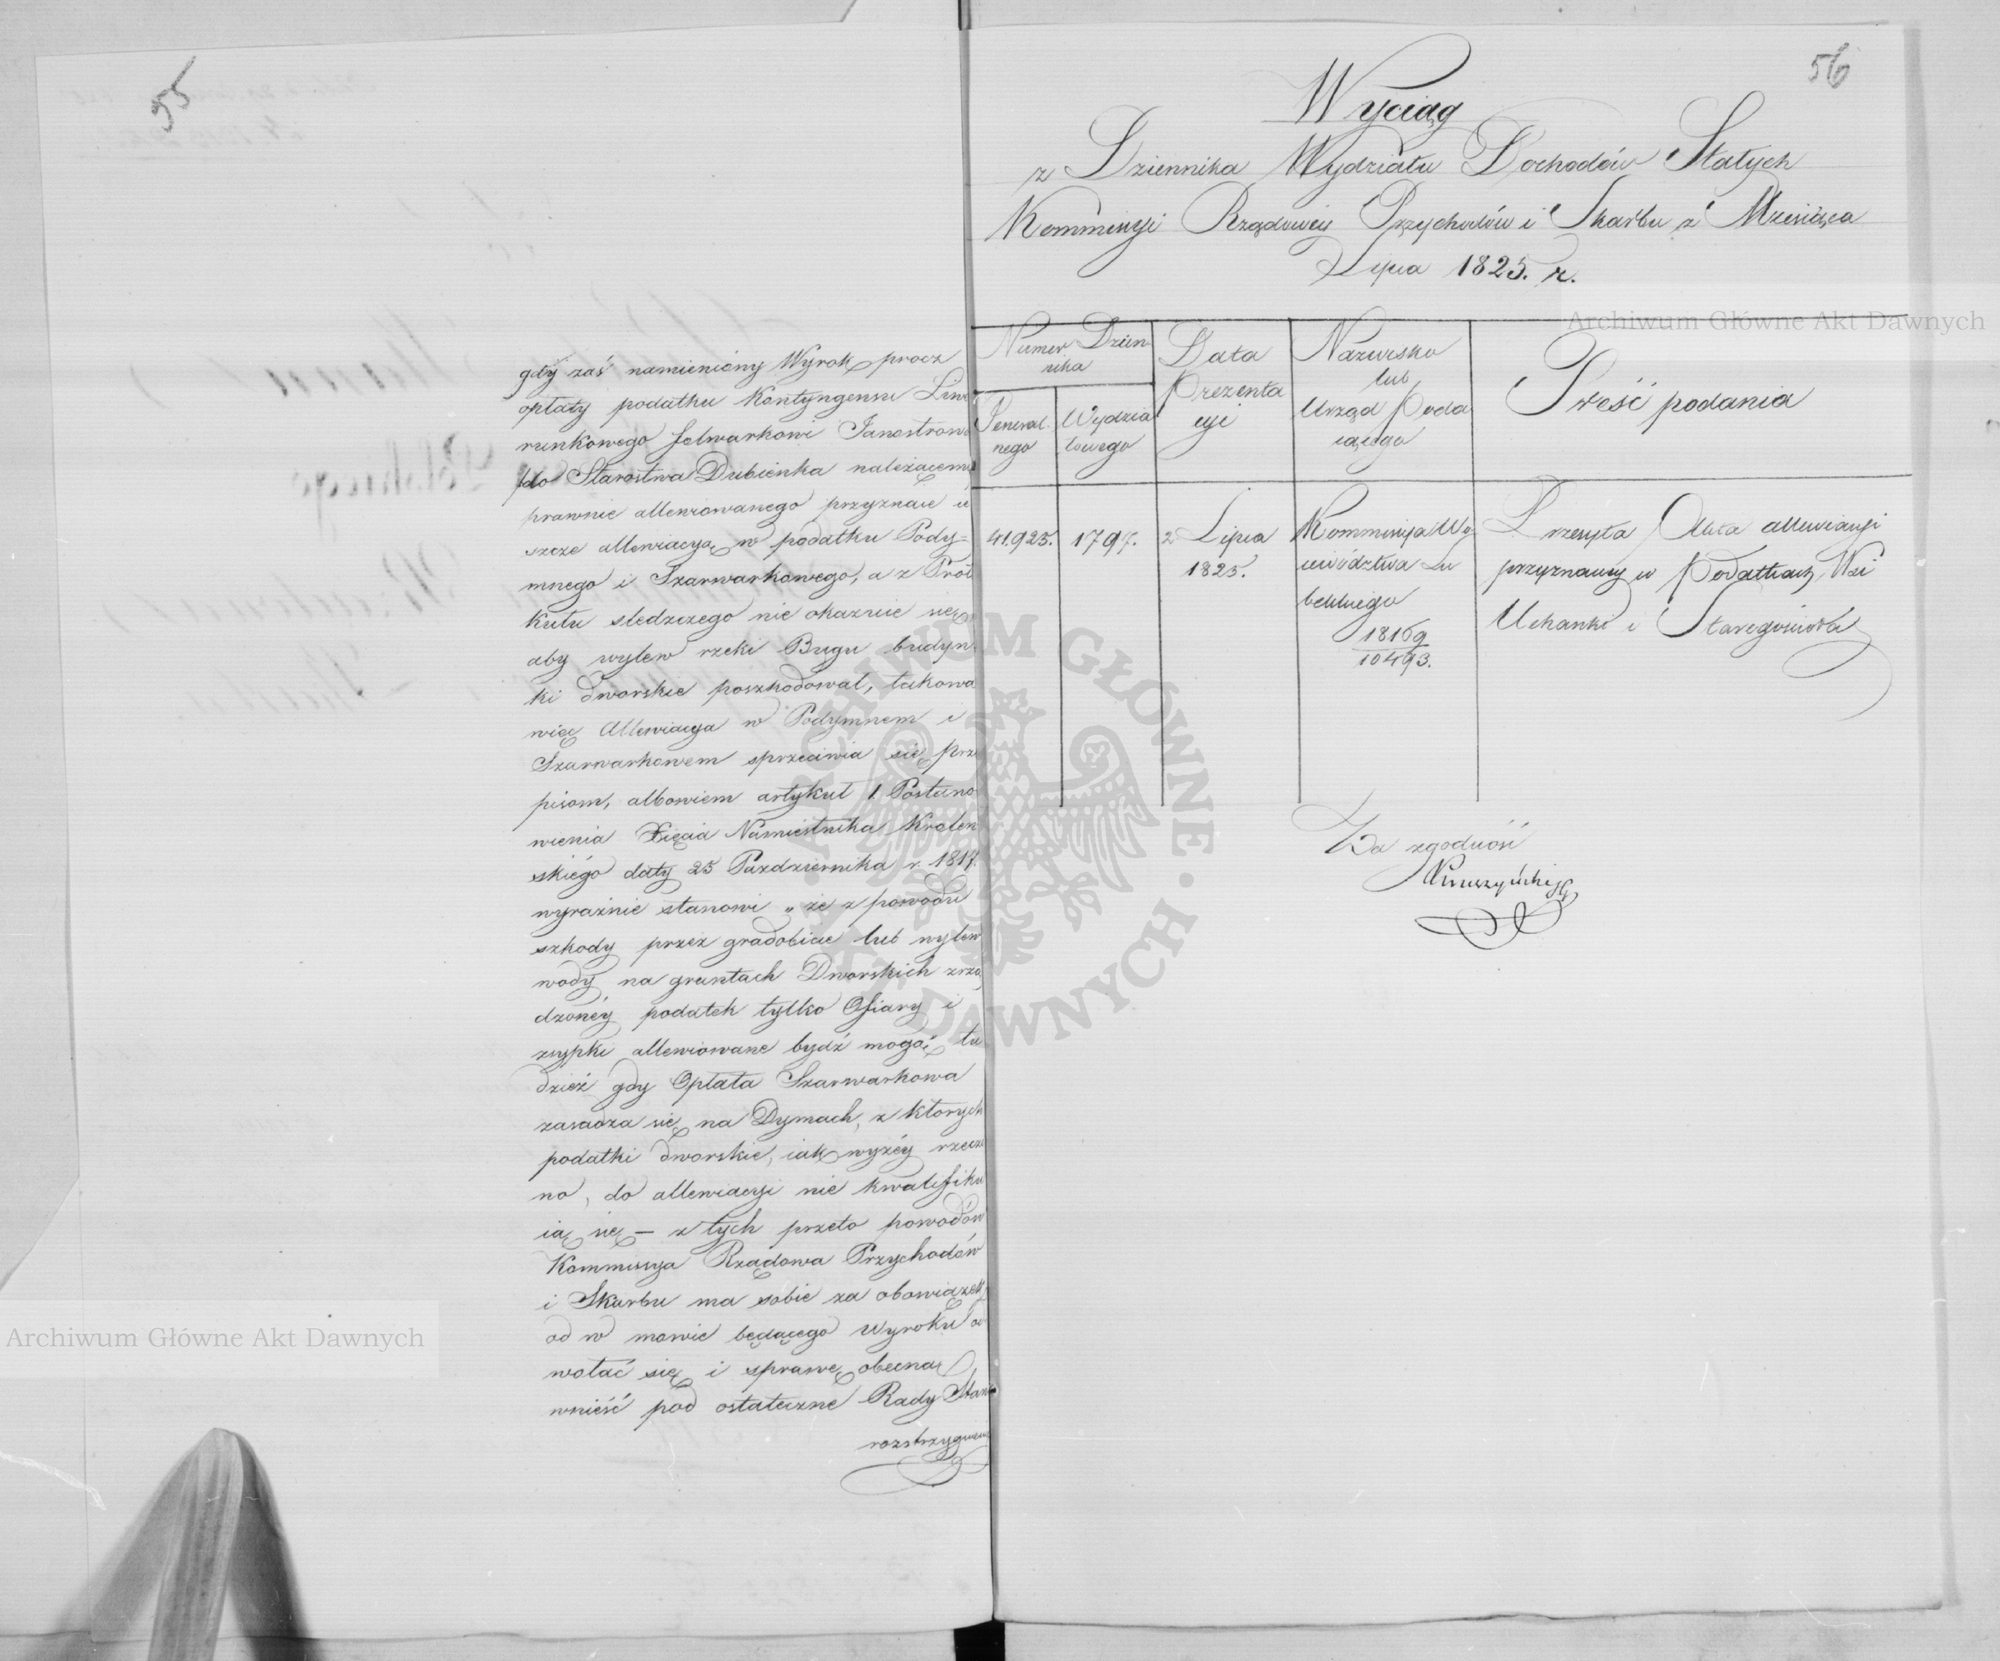 55
gdy zaś namieniony Wyrok, procz
opłaty podatku Kontyngensu Liwe
runkowego folwarkowi Janostrow
do Starostwa Dubienka należącemu
prawnie allewiowanego przyznaie ie
szcze allewiacyą w podatku Pody=
mnego i Szarwarkowego, a z Prot
kułu sledzczego nie okazuie się
aby wylew rzeki Bugu budyn
ki dworskie poszkodował, takowa
więc Allewiacya w Podymnem i
Szarwarkowem sprzeciwia się prze
pisom, albowiem artykuł 1. Postano
wienia Xięcia Namiestnika Krolew
skiégo daty 25 Pazdziernika r. 1817.
wyraźnie stanowi „ że z powodu
szkody przez gradobicie lub wylew
wody na gruntach Dworskich zrzą
dzonéy podatek tylko Ofiary i
zsypki allewiowane bydź mogą" tu
dzież gdy Opłata Szarwarkowa
zasadza się na Dymach, z ktorych
podatki dworskie, iak wyżéy rzeczo
no, do allewiacyi nie kwalifiku
ią się – z tych przeto powodów
Kommissya Rządowa Przychodów
i Skarbu ma sobie za obowiązek
od w mowie będącego wyroku od
wołać się i sprawę obecną
wnieść pod ostateczne Rady Stanu
rozstrzygnienie
56
Wyciąg
z Dziennika Wydziału Dochodów Stałych
Kommissyi Rządowéy Przychodów i Skarbu z Miesiąca
Lipca 1825. r.
Numer Dzien
nika
General
nego
Wydzia
łowego
Data
Prezenta
cyi
Nazwisko
lub
Urząd Poda
iącego
Treść podania
41,925.
1797.
2 Lipca
1825.
Kommissya Wo
iewództwa Lu
belskiego
18169
10493.
Przesyła Akta allewiacyi
przyznaney w Podatkach Wsi
Uchanki i Staregosioła
Za zgodność
Archiwum Główne Akt Dawnych
Archiwum Główne Akt Dawnych
ARCHIWUM GŁÓWNE AKT DAWNYCH